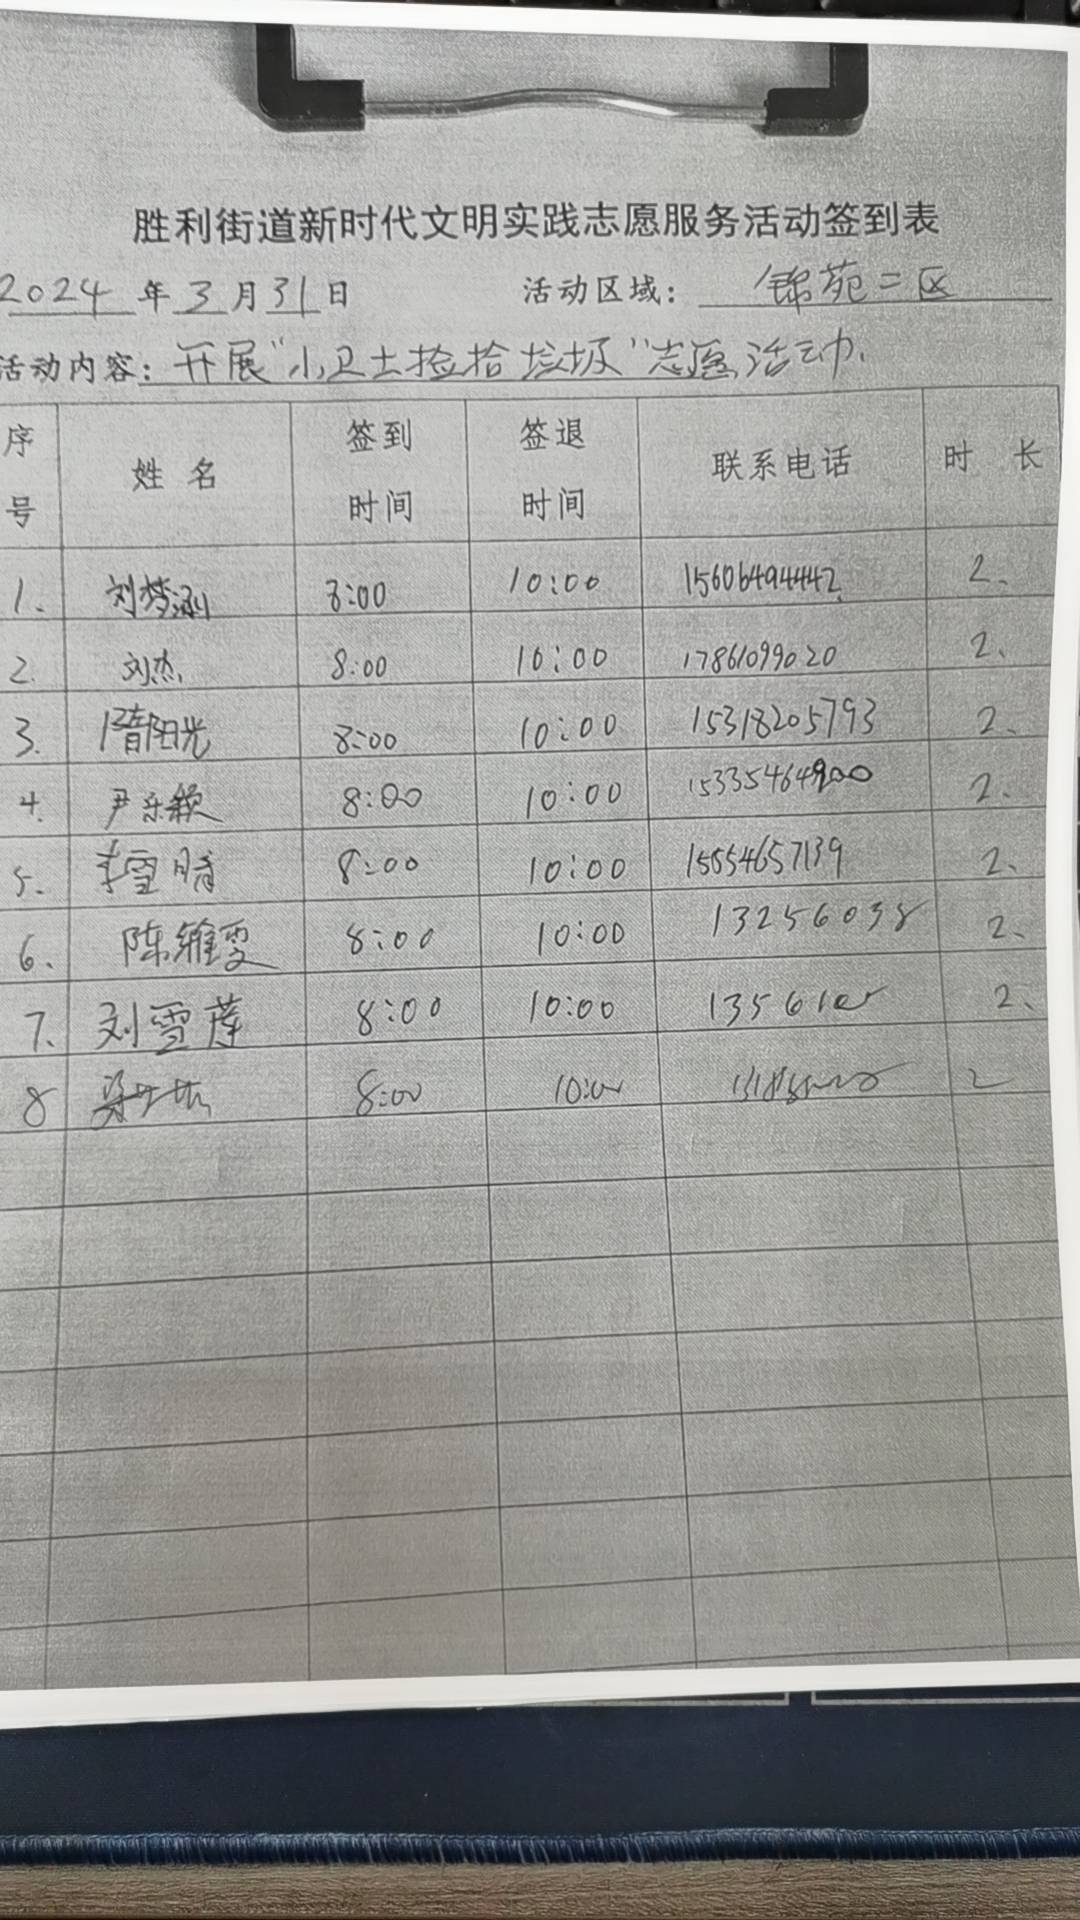 胜利街道新时代文明实践志愿服务活动签到表
2024 年 3 月 31 日 活动区域： 锦苑二区
活动内容：开展“小卫士捡拾垃圾”志愿活动.
序号 姓名 签到时间 签退时间 联系电话 时 长
1. 刘梦涵 8:00 10:00 15606494442 2.
2. 刘杰 8:00 10:00 17861099020 2.
3. 隋阳光 8:00 10:00 15318205793 2.
4. 尹乐颖 8:00 10:00 15335464900 2.
5. 李雪晴 8:00 10:00 15554657139 2.
6. 陈维雯 8:00 10:00 2.
7. 刘雪莲 8:00 10:00 2.
8 8:00 10:00 2